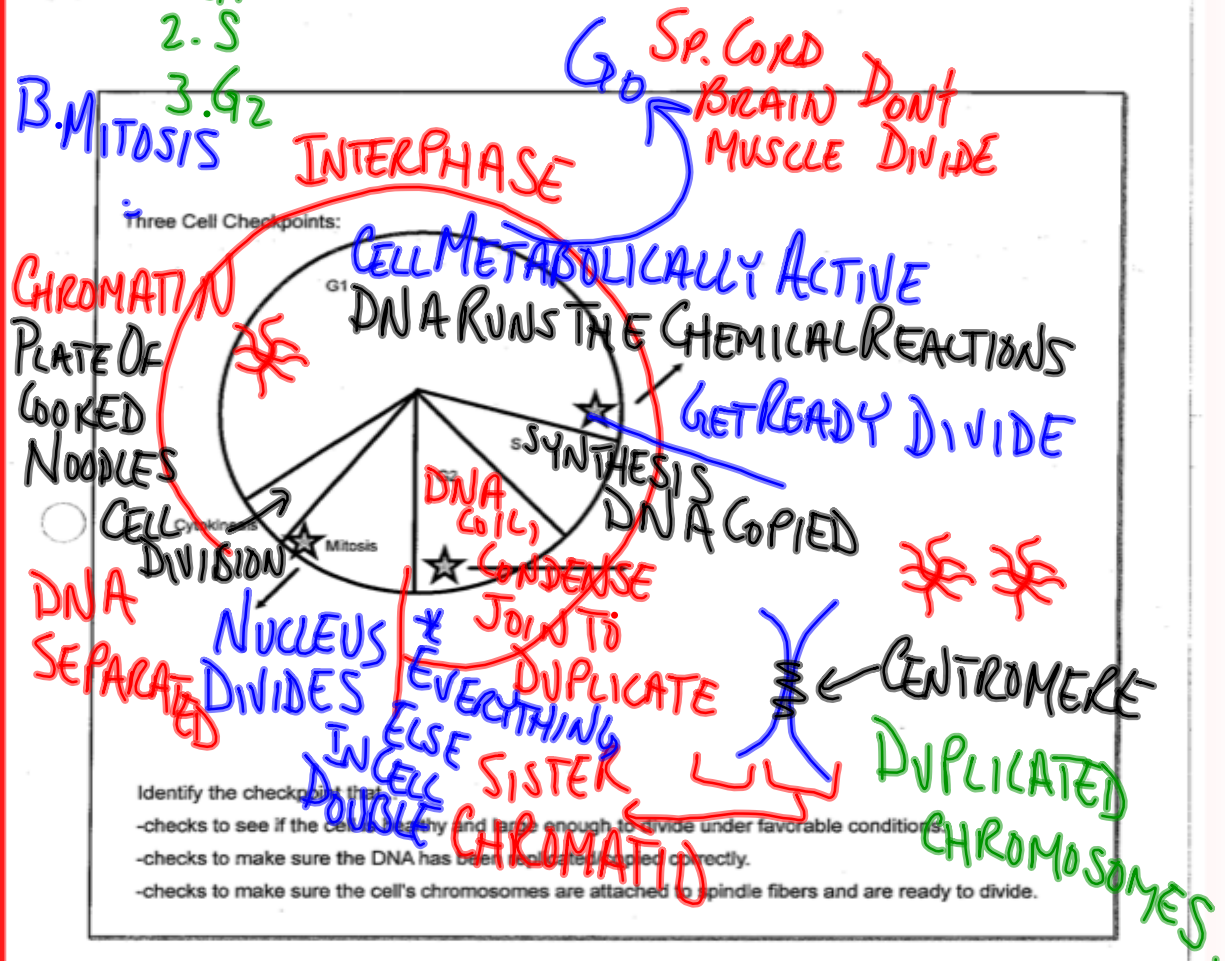 2. S
3. G2
B. MITOSIS
G0
SP. CORD
BRAIN DON'T
MUSCLE DIVIDE
INTERPHASE
Three Cell Checkpoints:
G1
CELL METABOLICALLY ACTIVE
DNA RUNS THE CHEMICAL REACTIONS
CHROMATIN
PLATE OF
COOKED
NOODLES
GET READY DIVIDE
S
SYNTHESIS
DNA COPIED
G2
DNA
COIL,
CONDENSE
JOIN TO
DUPLICATE
Cytokinesis
CELL
DIVISION
Mitosis
DNA
SEPARATED
NUCLEUS
DIVIDES
* EVERYTHING
ELSE
IN CELL
DOUBLE
CENTROMERE
SISTER
CHROMATID
DUPLICATED
CHROMOSOMES
Identify the checkpoint that
-checks to see if the cell is healthy and large enough to divide under favorable conditions.
-checks to make sure the DNA has been replicated/copied correctly.
-checks to make sure the cell's chromosomes are attached to spindle fibers and are ready to divide.